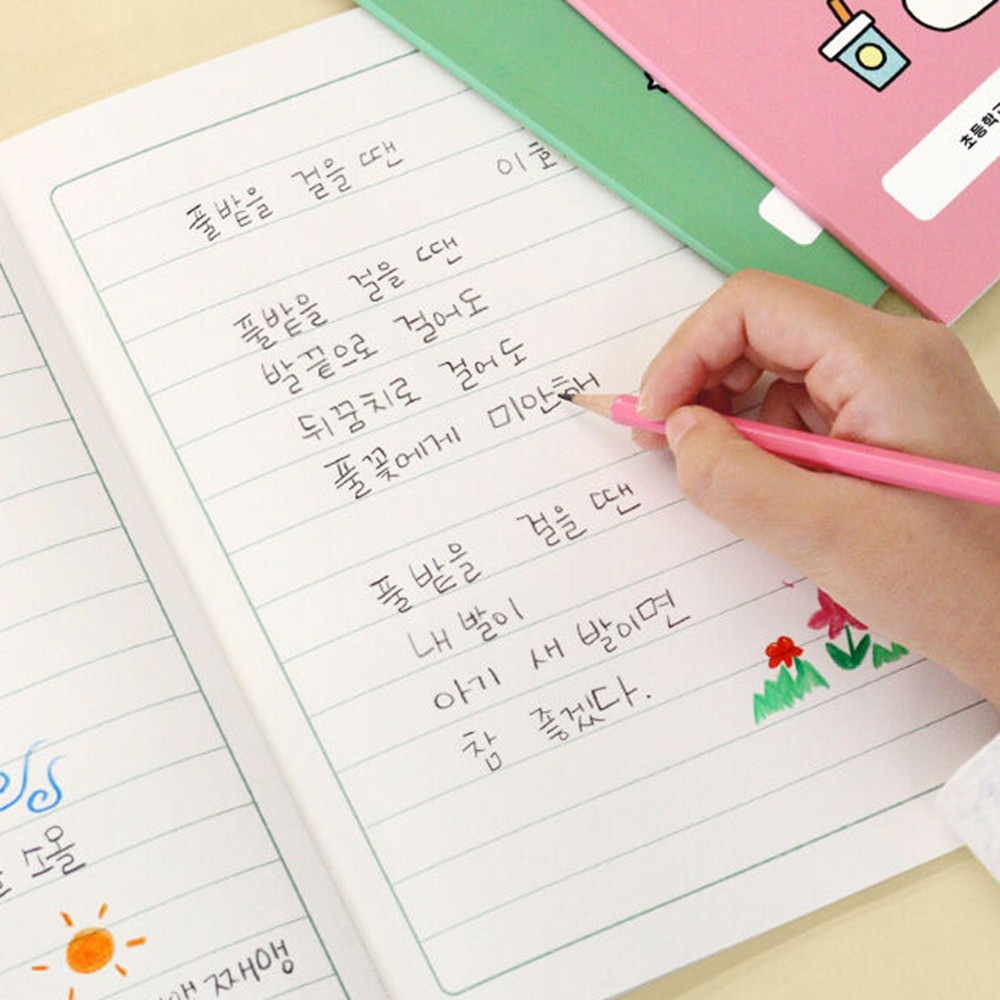 풀밭을 걸을 땐
이호
풀밭을 걸을 땐
발끝으로 걸어도
뒤꿈치로 걸어도
풀꽃에게 미안해
풀밭을 걸을 땐
내 발이
아기 새 발이면
참 좋겠다.
소올
째앵
초등학교